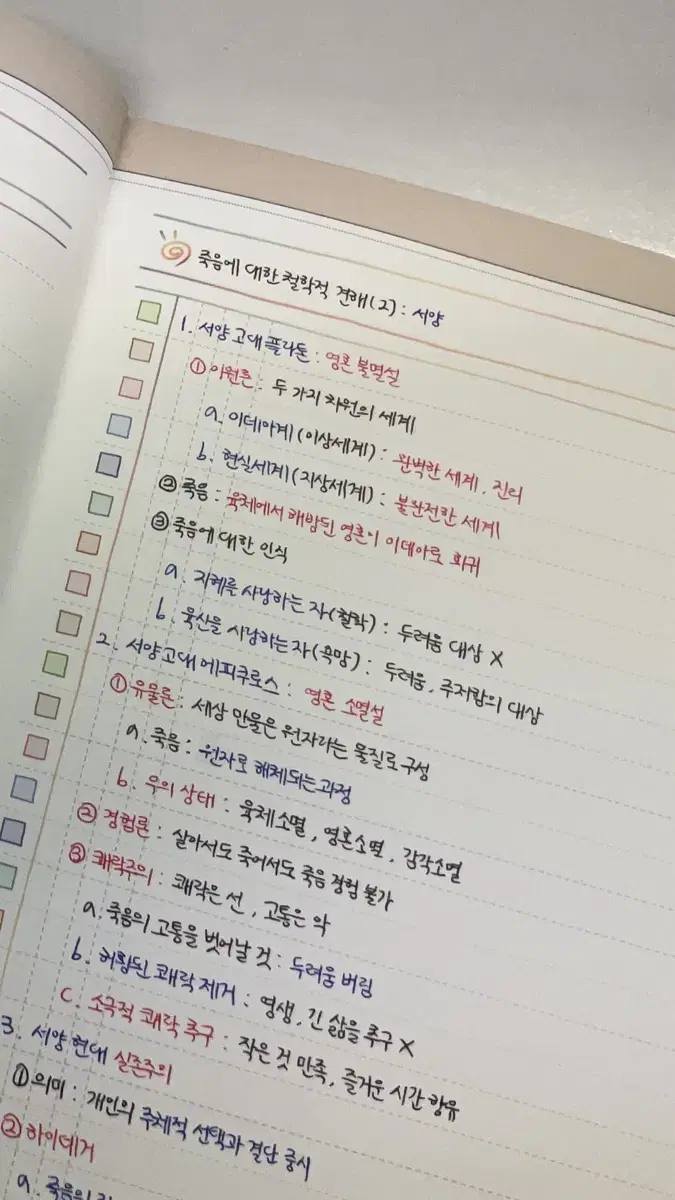 죽음에 대한 철학적 견해(2) : 서양
1. 서양 고대 플라톤 : 영혼 불멸설
① 이원론 : 두 가지 차원의 세계
a. 이데아계(이상세계) : 완벽한 세계, 진리
b. 현실세계(지상세계) : 불완전한 세계
② 죽음 : 육체에서 해방된 영혼이 이데아로 회귀
③ 죽음에 대한 인식
a. 지혜를 사랑하는 자(철학) : 두려움 대상 X
b. 육신을 사랑하는 자(욕망) : 두려움, 주저함의 대상
2. 서양 고대 에피쿠로스 : 영혼 소멸설
① 유물론 : 세상 만물은 원자라는 물질로 구성
a. 죽음 : 원자로 해체되는 과정
b. 무의 상태 : 육체소멸, 영혼소멸, 감각소멸
② 경험론 : 살아서도 죽어서도 죽음 경험 불가
③ 쾌락주의 : 쾌락은 선, 고통은 악
a. 죽음의 고통을 벗어날 것 : 두려움 버림
b. 허황된 쾌락 제거 : 영생, 긴 삶을 추구 X
c. 소극적 쾌락 추구 : 작은 것 만족, 즐거운 시간 향유
3. 서양 현대 실존주의
① 의미 : 개인의 주체적 선택과 결단 중시
② 하이데거
a. 죽음의